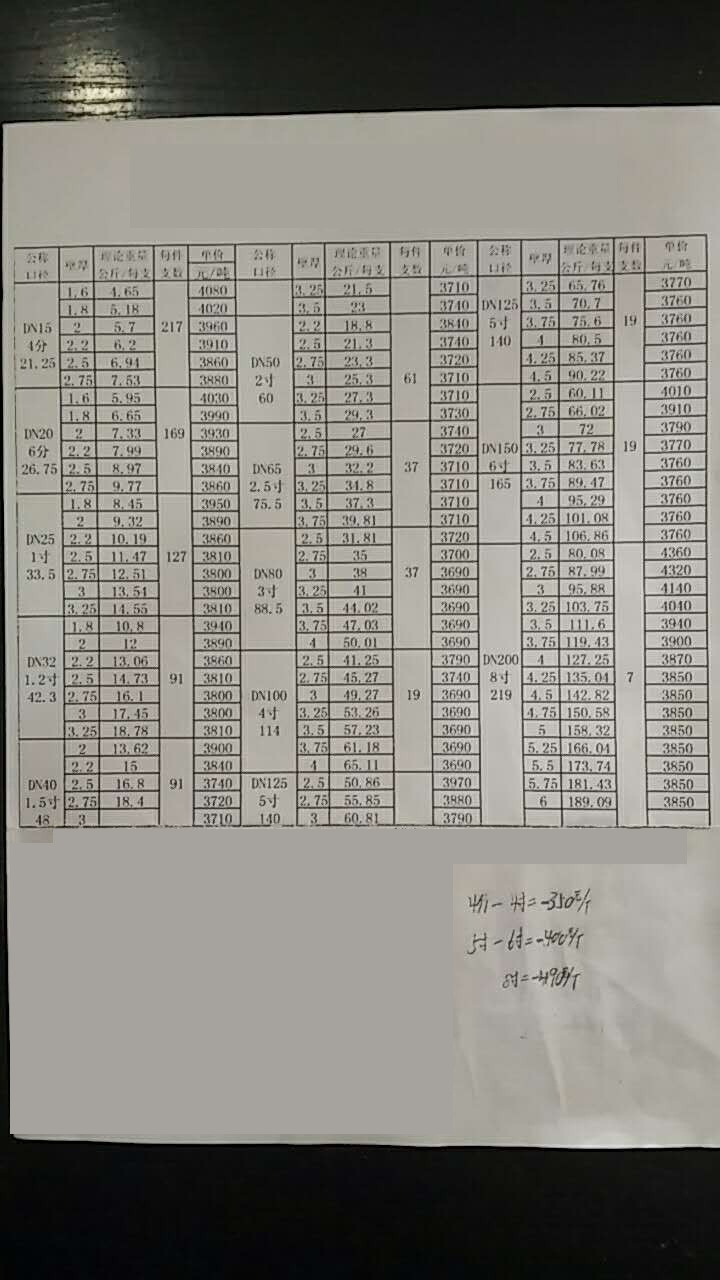 公称 壁厚 理论重量 每件 单价 公称 壁厚 理论重量 每件 单价 公称 壁厚 理论重量 每件 单价
口径 公斤/每支 支数 元/吨 口径 公斤/每支 支数 元/吨 口径 公斤/每支 支数 元/吨
1.6 4.65 4080 3.25 21.5 3710 3.25 65.76 3770
1.8 5.18 4020 3.5 23 3740 DN125 3.5 70.7 3760
DN15 2 5.7 217 3960 2.2 18.8 3840 5寸 3.75 75.6 19 3760
4分 2.2 6.2 3910 2.5 21.3 3740 140 4 80.5 3760
21.25 2.5 6.94 3860 DN50 2.75 23.3 3720 4.25 85.37 3760
2.75 7.53 3880 2寸 3 25.3 61 3710 4.5 90.22 3760
1.6 5.95 4030 60 3.25 27.3 3710 2.5 60.11 4010
1.8 6.65 3990 3.5 29.3 3730 2.75 66.02 3910
DN20 2 7.33 169 3930 2.5 27 3740 3 72 3790
6分 2.2 7.99 3890 2.75 29.6 3720 DN150 3.25 77.78 19 3770
26.75 2.5 8.97 3840 DN65 3 32.2 37 3710 6寸 3.5 83.63 3760
2.75 9.77 3860 2.5寸 3.25 34.8 3710 165 3.75 89.47 3760
1.8 8.45 3950 75.5 3.5 37.3 3710 4 95.29 3760
2 9.32 3890 3.75 39.81 3710 4.25 101.08 3760
DN25 2.2 10.19 3860 2.5 31.81 3720 4.5 106.86 3760
1寸 2.5 11.47 127 3810 2.75 35 3700 2.5 80.08 4360
33.5 2.75 12.51 3800 DN80 3 38 37 3690 2.75 87.99 4320
3 13.54 3800 3寸 3.25 41 3690 3 95.88 4140
3.25 14.55 3810 88.5 3.5 44.02 3690 3.25 103.75 4040
1.8 10.8 3940 3.75 47.03 3690 3.5 111.6 3940
2 12 3890 4 50.01 3690 3.75 119.43 3900
DN32 2.2 13.06 3860 2.5 41.25 3790 DN200 4 127.25 3870
1.2寸 2.5 14.73 91 3810 2.75 45.27 3740 8寸 4.25 135.04 7 3850
42.3 2.75 16.1 3800 DN100 3 49.27 19 3690 219 4.5 142.82 3850
3 17.45 3800 4寸 3.25 53.26 3690 4.75 150.58 3850
3.25 18.78 3810 114 3.5 57.23 3690 5 158.32 3850
2 13.62 3900 3.75 61.18 3690 5.25 166.04 3850
2.2 15 3840 4 65.11 3690 5.5 173.74 3850
DN40 2.5 16.8 91 3740 DN125 2.5 50.86 3970 5.75 181.43 3850
1.5寸 2.75 18.4 3720 5寸 2.75 55.85 3880 6 189.09 3850
48 3 3710 140 3 60.81 3790
4分-4寸=-350元/T
5寸-6寸=-400元/T
8寸=-490元/T